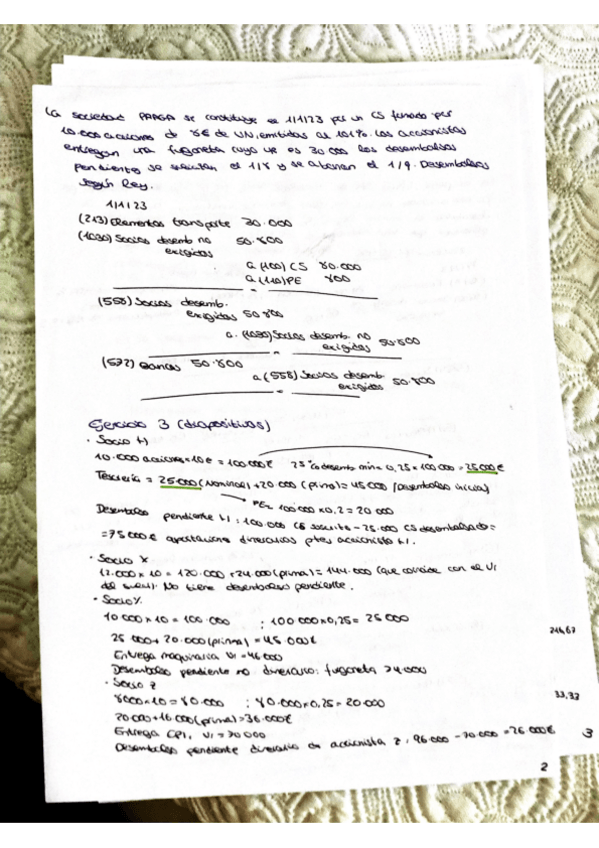 La sociedad PARGA se constituye el 1/1/23 por un CS formado por
10.000 acciones de 8€ de VN, emitidas al 101%. Los accionistas
entregan una furgoneta cuyo VR es 30 000 los desembolsos
pendientes se solicitan el 1/8 y se abonan el 1/9. Desembolsos
según ley.
1/1/23
(213) Elementos transporte 30.000
(1030) Socios desemb no 50.800
exigidos
a (100) CS 80.000
a (110) PE 800
(558) Socios desemb.
exigidos 50 800
a. (1030) Socios desemb. no
exigidos 50.800
(572) Bancos 50.800
a (558) Socios desemb.
exigidos 50.800
Ejercicio 3 (diapositivas)
· Socio H)
10.000 acciones × 10€ = 100.000€ 25% desemb min = 0,25 × 100.000 = 25.000€
Tesorería = 25.000 (Nominal) + 20.000 (prima) = 45.000 (Desembolso inicial)
PE = 100.000 × 0,2 = 20.000
Desembolso pendiente H: 100.000 CS suscrito - 25.000 CS desembolsado =
= 75 000 € aportaciones dinerarias ptes accionista H.
· Socio X
12.000 × 10 = 120.000 + 24.000 (prima) = 144.000 (que coincide con el Vr
del). No tiene desembolso pendiente.
· Socio Y.
10 000 × 10 = 100.000 ; 100.000 × 0,25 = 25 000
25 000 + 20.000 (prima) = 45.000€
Entrega maquinaria Vr = 46 000
Desembolso pendiente no dinerario: furgoneta 74.000
· Socio Z
8000 × 10 = 80.000 ; 80.000 × 0,25 = 20.000
20.000 + 16 000 (prima) = 36.000€
Entrega CPI, Vr = 70 000
Desembolso pendiente dinerario de accionista Z: 96.000 - 70.000 = 26.000€
216,67
33,33
3
2